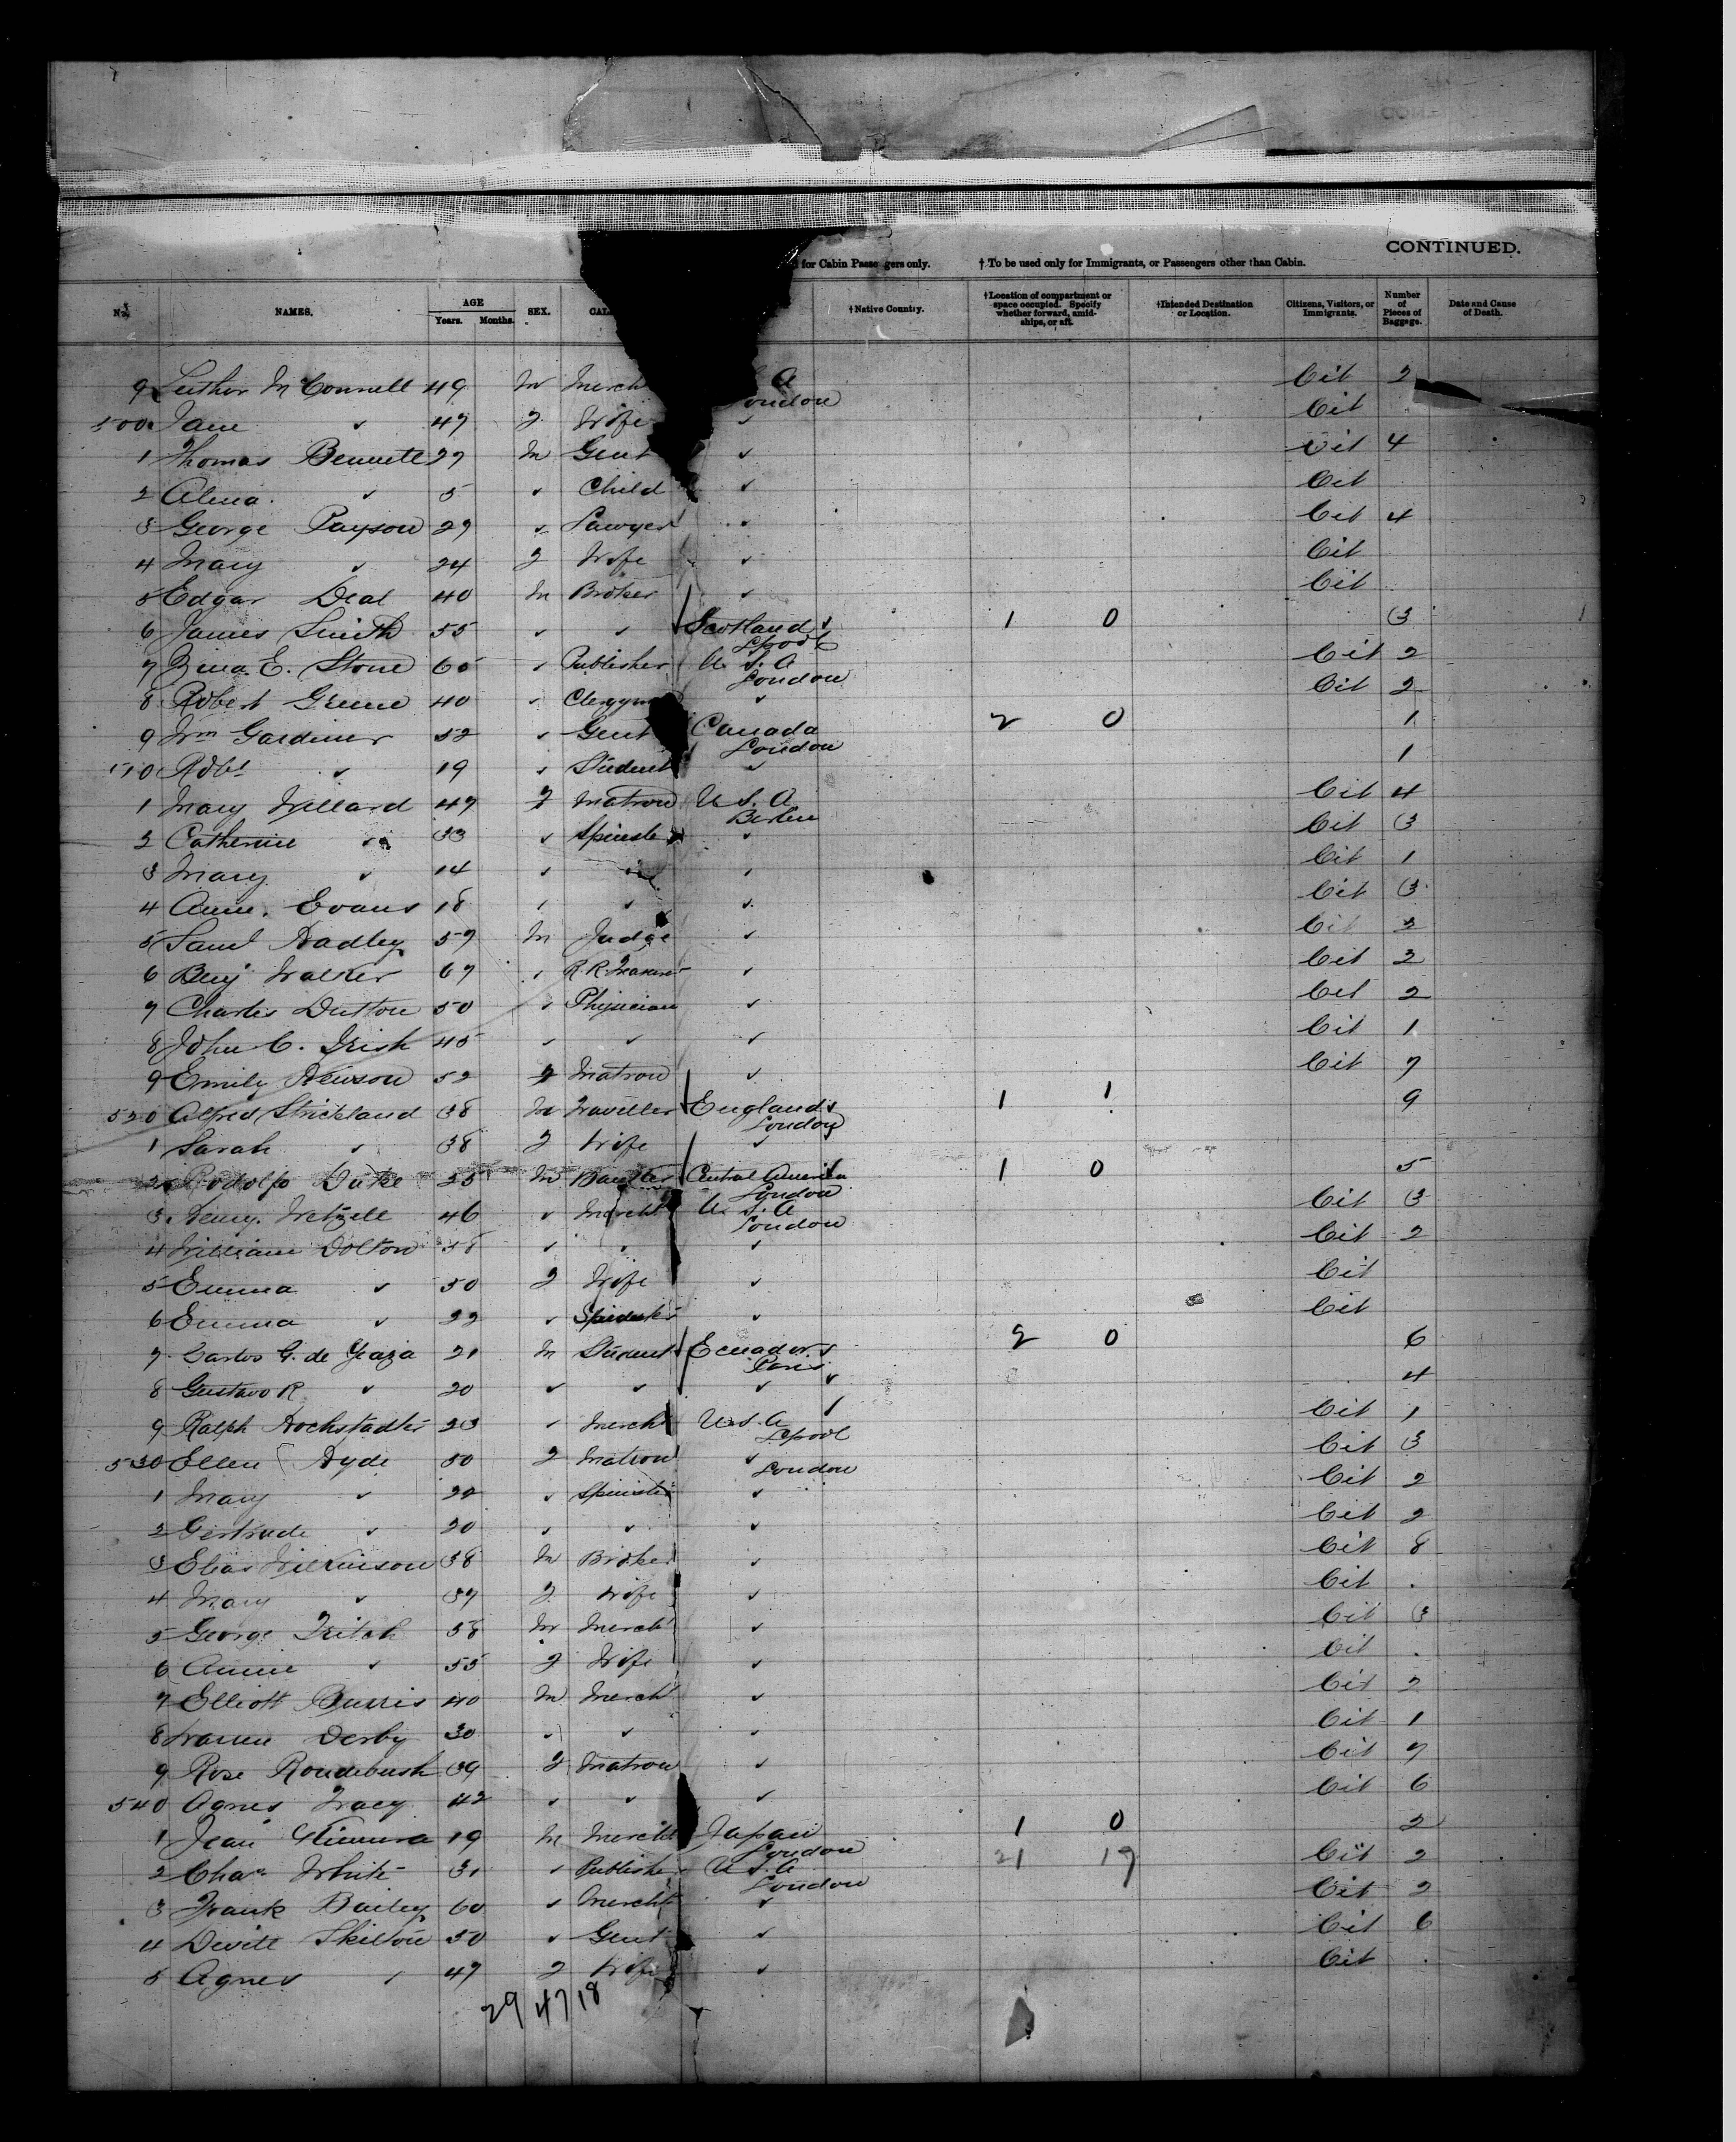 CONTINUED.
for Cabin Passengers only. † To be used only for Immigrants, or Passengers other than Cabin.
No. NAMES. AGE Years. Months. SEX. CAL †Native Country. †Location of compartment or space occupied. Specify whether forward, amid-ships, or aft. †Intended Destination or Location. Citizens, Visitors, or Immigrants. Number of Pieces of Baggage. Date and Cause of Death.
9 Luther McConnell 49 M Merch A London Cit 2
500 Jane ✓ 47 F Wife ✓ Cit
1 Thomas Bennett 27 M Gent ✓ Cit 4
2 Alma ✓ 5 ✓ Child ✓ Cit
3 George Payson 29 ✓ Lawyer ✓ Cit 4
4 Mary ✓ 24 F Wife ✓ Cit
5 Edgar Deal 40 M Broker ✓ Cit
6 James Smith 55 ✓ ✓ Scotland Lpool 1 0 3
7 E. Stone 60 ✓ Publisher U.S.A London Cit 2
8 Robert Greene 40 ✓ Clergym ✓ Cit 2
9 Wm Gardiner 52 ✓ Gent Canada London 2 0 1
510 Robt ✓ 19 ✓ Student ✓ 1
1 Mary Willard 47 F Matron U.S.A Berlin Cit 4
2 Catherine ✓ 33 ✓ Spinster ✓ Cit 3
3 Mary ✓ 14 ✓ ✓ Cit 1
4 Anne Evans 18 ✓ ✓ ✓ Cit 3
5 Saml Hadley 57 M Judge ✓ Cit 2
6 Benj Walker 67 ✓ R.R. ✓ Cit 2
7 Charles Dutton 50 ✓ Physician ✓ Cit 2
8 John C. Irish 45 ✓ ✓ ✓ Cit 1
9 Emily Hewson 52 F Matron ✓ Cit 7
520 Alfred Strickland 38 M Traveller England London 1 1 9
1 Sarah ✓ 38 F Wife ✓
2 Rodolfo Duke 25 M Central America London 1 0 5
3 Henry Wetzell 46 ✓ Mercht U.S.A London Cit 3
4 William Dolton 58 ✓ ✓ ✓ Cit 2
5 Emma ✓ 50 F Wife ✓ Cit
6 Emma ✓ 22 ✓ Spinster ✓ Cit
7 Carlos G. de 21 M Student Ecuador Paris 2 0 6
8 Gustavo R ✓ 20 ✓ ✓ ✓ 4
9 Ralph Hochstadter 23 ✓ Mercht U.S.A Lpool Cit 1
530 Ellen Hyde 50 F Matron ✓ London Cit 3
1 Mary ✓ 22 ✓ Spinster ✓ Cit 2
2 Gertrude ✓ 20 ✓ ✓ ✓ Cit 2
3 Elias Wilkinson 38 M Broker ✓ Cit 8
4 Mary ✓ 37 F Wife ✓ Cit
5 George Tritch 58 M Mercht ✓ Cit 3
6 Annie ✓ 55 F Wife ✓ Cit
7 Elliott Burris 40 M Mercht ✓ Cit 2
8 Warren Derby 30 ✓ ✓ ✓ Cit 1
9 Rose Roudebush 39 F Matron ✓ Cit 7
540 Agnes Tracy 42 ✓ ✓ ✓ Cit 6
1 Jean 19 M Mercht Japan London 1 0 2
2 Chas White 31 ✓ Publisher U.S.A London 21 19 Cit 2
3 Frank Bailey 60 ✓ Mercht ✓ Cit 2
4 Dewitt Skilton 50 ✓ Gent ✓ Cit 6
5 Agnes ✓ 47 F Wife ✓ Cit
29 47 18